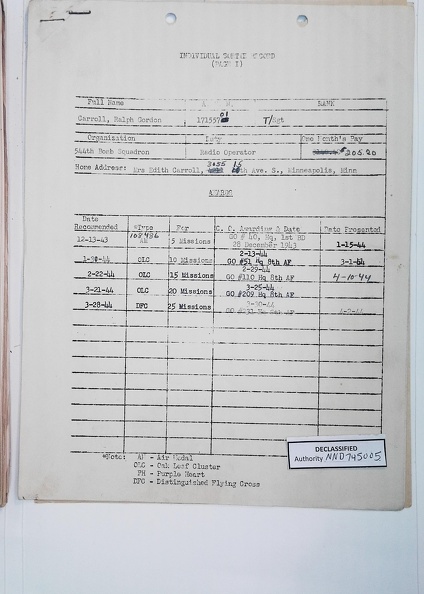 INDIVIDUAL COMBAT RECORD
(PAGE I)
Full Name A. S. N. RANK
Carroll, Ralph Gordon 17155701 T/Sgt
Organization Duty One Month's Pay
544th Bomb Squadron Radio Operator $205.20
Home Address: Mrs Edith Carroll, 3035 15th Ave. S., Minneapolis, Minn
AWARDS
Date Recommended *Type For G. O. Awarding & Date Date Presented
12-13-43 108486 AM 5 Missions GO # 60, Hq, 1st BD 28 December 1943 1-15-44
1-30-44 OLC 10 Missions 2-13-44 GO #51 Hq 8th AF 3-1-44
2-22-44 OLC 15 Missions 2-29-44 GO #110 Hq 8th AF 4-10-44
3-21-44 OLC 20 Missions 3-25-44 GO #209 Hq 8th AF
3-28-44 DFC 25 Missions 3-30-44 GO #231 Hq 8th AF 4-2-44
DECLASSIFIED
Authority NND745005
*Note: AM - Air Medal
OLC - Oak Leaf Cluster
PH - Purple Heart
DFC - Distinguished Flying Cross